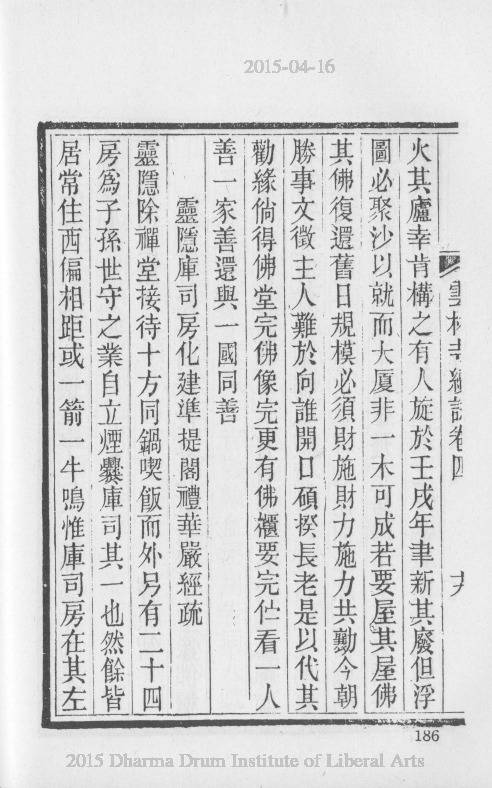 2015-04-16
雲林寺續誌卷四
火其廬幸肯構之有人旋於壬戌年聿新其廢但浮
圖必聚沙以就而大厦非一木可成若要屋其屋佛
其佛復還舊日規模必須財施財力施力共勷今朝
勝事文徵主人難於向誰開口碩揆長老是以代其
勸緣倘得佛堂完佛像完更有佛櫃要完伫看一人
善一家善還與一國同善
靈隱庫司房化建準提閣禮華嚴經疏
靈隱除禪堂接待十方同鍋喫飯而外另有二十四
房爲子孫世守之業自立煙爨庫司其一也然餘皆
居常住西偏相距或一箭一牛鳴惟庫司房在其左
186
2015 Dharma Drum Institute of Liberal Arts